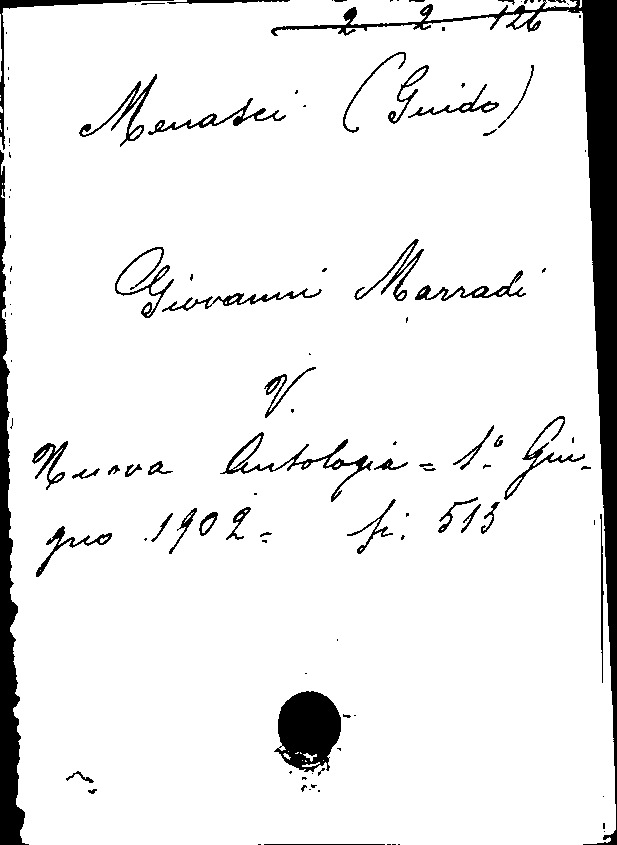 2. 2. 126
Menasci (Guido)
Giovanni Marradi
V.
Nuova Antologia = 1º Giu-
gno 1902 = p. 513